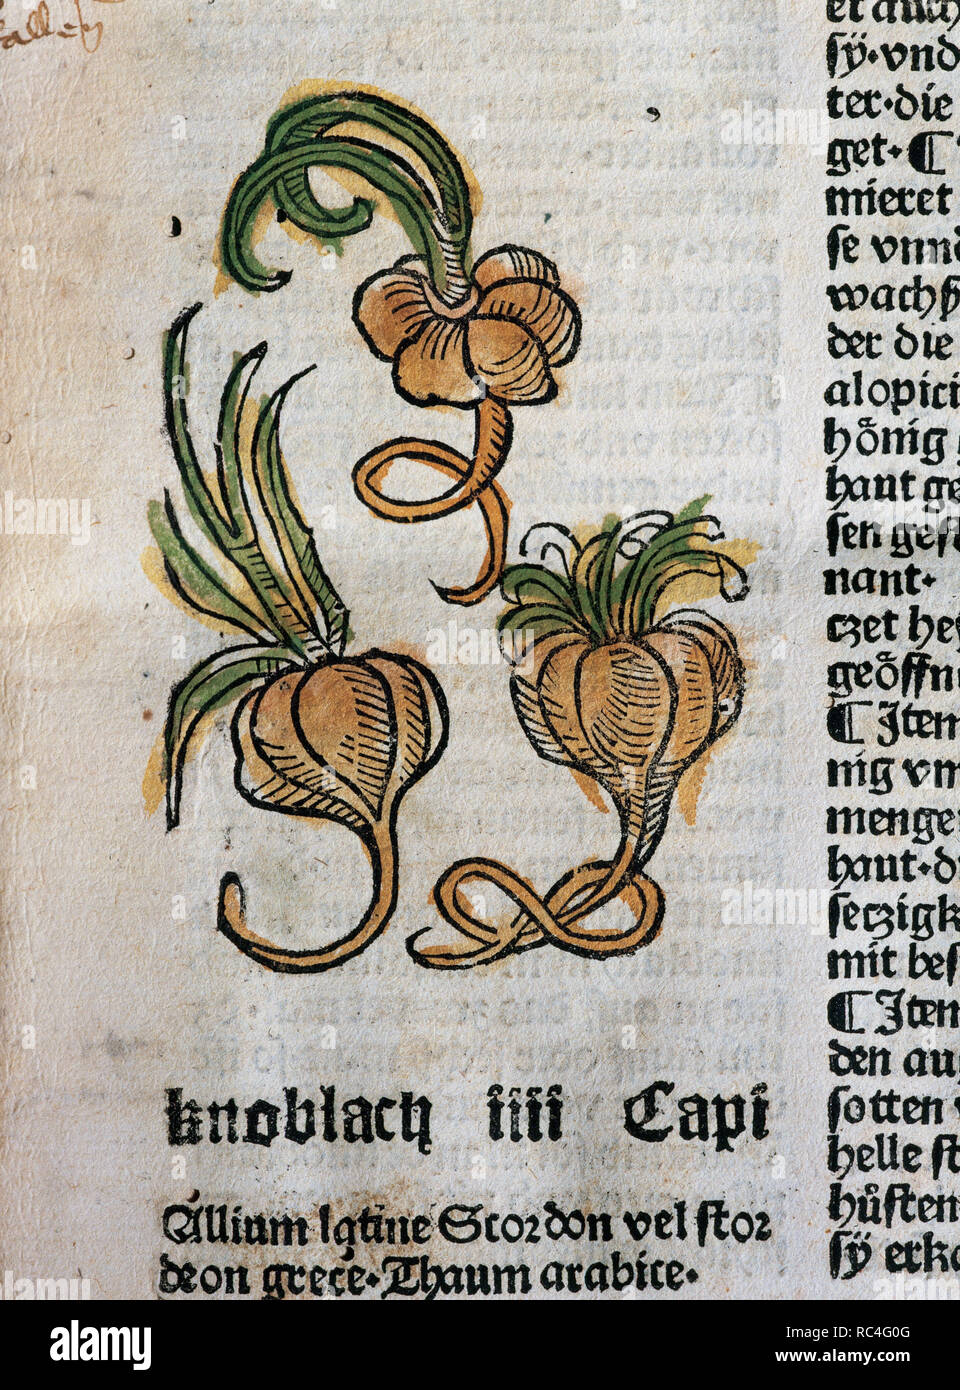 knoblach iiii Capi
Allium latine Scordon vel scor
deon grece. Thaum arabice.
et auch
sÿ.vnd
ter.die
get. ¶
mieret
se vnnd
wachß
der die
alopici
hőnig
haut ge
sen gest
nant.
czet hey
geőffni
¶ Item
nig vm
menge
haut.d
seczigk
mit bes
¶ Item
den au
sotten v
helle st
hůsten
sÿ erka
alamy stock photo
RC4G0G
www.alamy.com